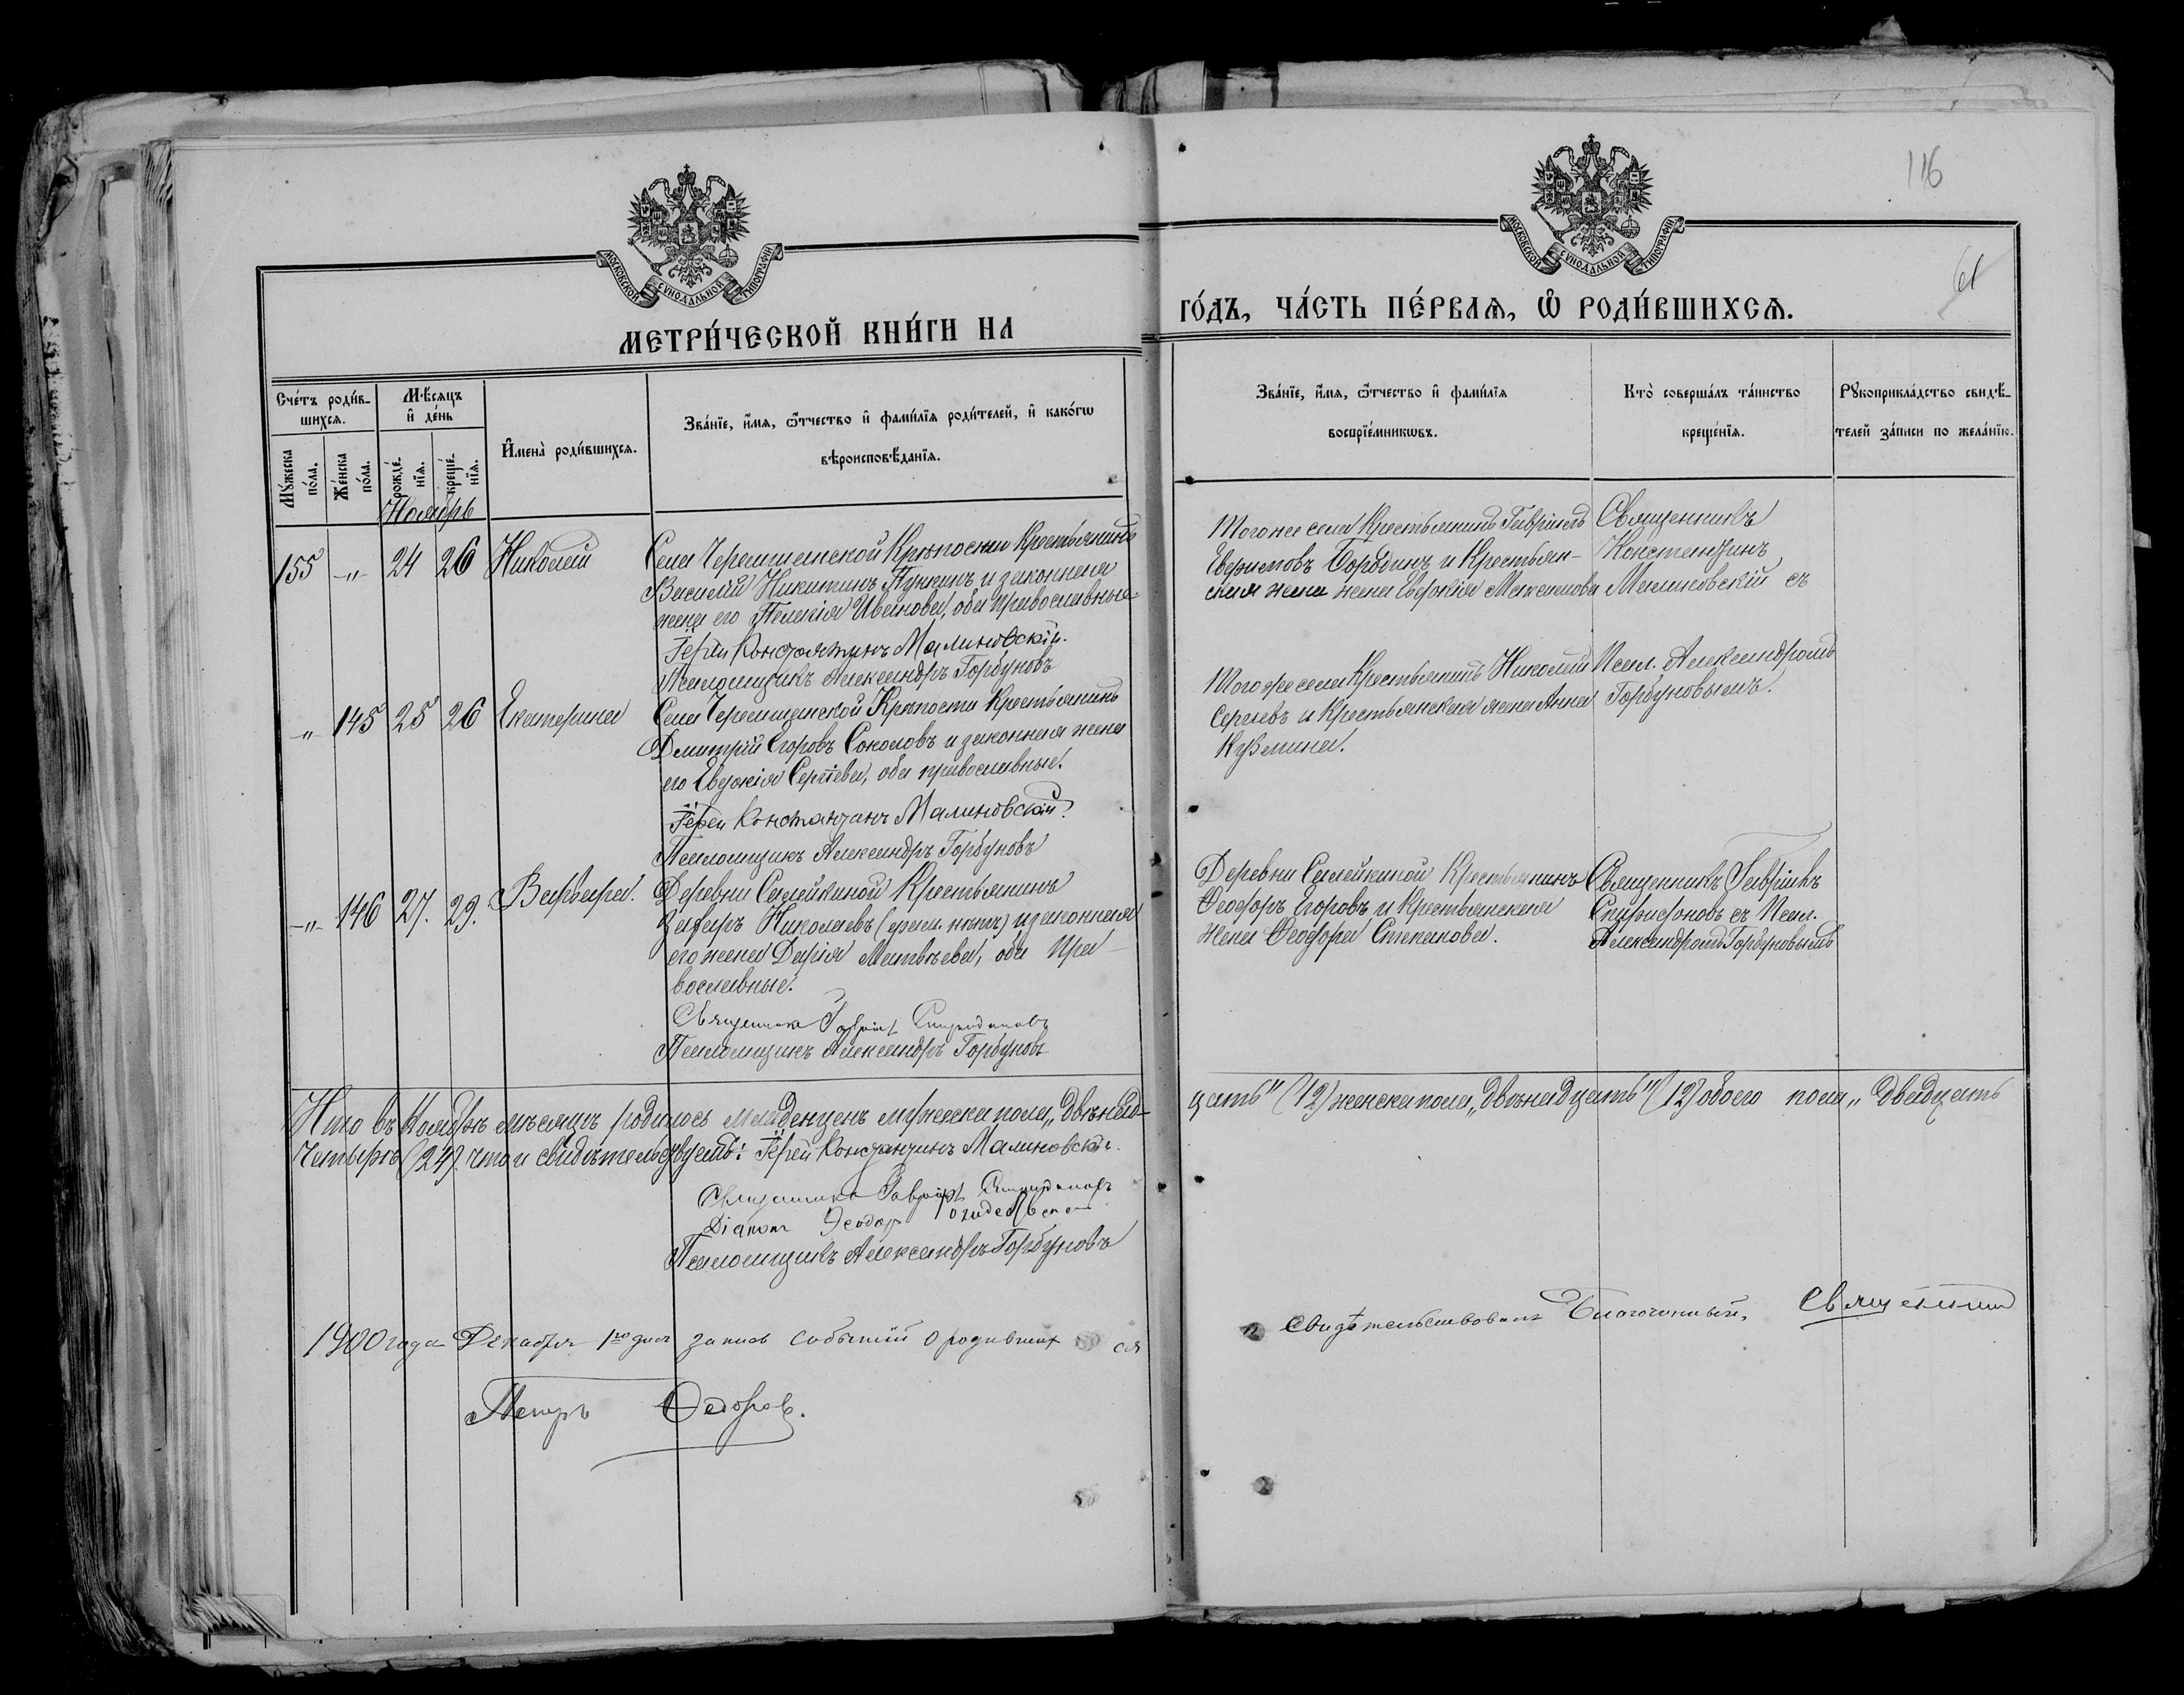 116
61
МОСКОВСКОЙ СѴНОДАЛЬНОЙ ТИПОГРАФІИ
МОСКОВСКОЙ СѴНОДАЛЬНОЙ ТИПОГРАФІИ
МЕТРИ́ЧЕСКОЙ КНИ́ГИ НА
ГО́ДЪ, ЧА́СТЬ ПЕ́РВАѦ, Ѽ РОДИ́ВШИХСѦ.
Сче́тъ роди́в-
шихсѧ.
Мѣ́сѧцъ
и҆ де́нь
Мꙋ́жеска
по́ла.
Же́нска
по́ла.
рожде́-
нїѧ.
креще́-
нїѧ.
И҆мена̀ роди́вшихсѧ.
Зва́нїе, и҆́мѧ, ѻ҆́тчество и҆ фами́лїѧ роди́телей, и҆ како́гѡ
вѣроисповѣ́данїѧ.
Зва́нїе, и҆́мѧ, ѻ҆́тчество и҆ фами́лїѧ
воспрїе́мникѡвъ.
Кто̀ соверша́лъ та́инство
креще́нїѧ.
Рꙋкоприкла́дство свидѣ́-
телей за́писи по жела́нїю.
Ноябрь
155 -"- 24 26 Николай
Села Черемшанской Крѣпости Крестьянинъ
Василій Никитинъ и законная
жена его Пелагія Иванова, оба православные
Іерей Константинъ Малиновскій.
Псаломщикъ Александръ Горбуновъ
Тогоже села Крестьянинъ Гавріилъ
Бородинъ и Крестьян-
ская жена жена Евдокія Максимова
Священникъ
Константинъ
Малиновскій съ
Псал. Александромъ
Горбуновымъ.
" 145 25 26 Екатерина
Села Черемшанской Крѣпости Крестьянинъ
Дмитрій Егоровъ Соколовъ и законная жена
его Евдокія Сергіева, оба православные.
Іерей Константинъ Малиновскій.
Псаломщикъ Александръ Горбуновъ
Тогоже села Крестьянинъ Николай
Сергѣевъ и Крестьянская жена Анна
Кузьмина.
-"- 146 27. 29. Варвара.
Деревни Силейкиной Крестьянинъ
Захаръ Николаевъ (фамил. нѣтъ) и законная
его жена Дарія Матвѣева, оба пра-
вославные.
Священникъ Гавріилъ Спиридоновъ
Псаломщикъ Александръ Горбуновъ
Деревни Силейкиной Крестьянинъ
Ѳеодоръ Егоровъ и Крестьянская
жена Ѳеодора Степанова.
Священникъ Гавріилъ
Спиридоновъ съ Псал.
Александромъ Горбуновымъ
Итого въ Ноябрѣ мѣсяцѣ родилось младенцевъ мужеска пола „двѣнад-
цать" (12) женска пола „двѣнадцать" (12) обоего пола „двадцать
Четыре" (24). что и свидѣтельствуемъ: Іерей Константинъ Малиновскій.
Священникъ Гавріилъ Спиридоновъ
Діаконъ Ѳеодоръ
Псаломщикъ Александръ Горбуновъ
1900 года Декабря 1го дня запись событій о родившихся
свидѣтельствовалъ Благочинный, Священникъ
Петръ Ѳедоровъ.